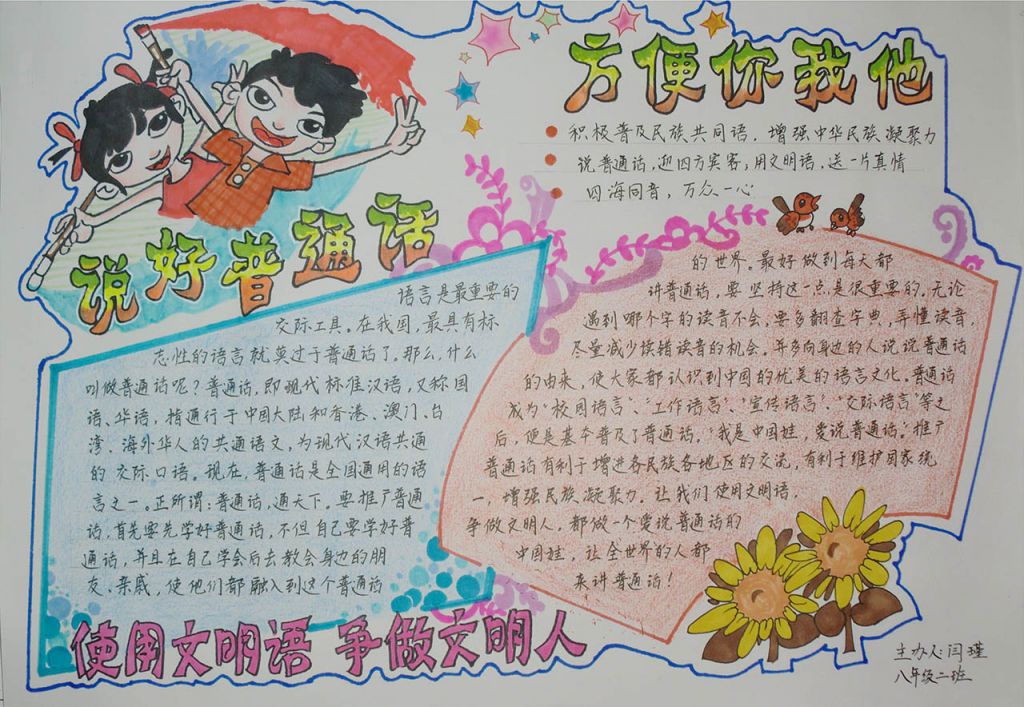 说好普通话
方便你我他
积极普及民族共同语，增强中华民族凝聚力
说普通话，迎四方宾客；用文明语，送一片真情
四海同音，万众一心
语言是最重要的
交际工具。在我国，最具有标
志性的语言就莫过于普通话了。那么，什么
叫做普通话呢？普通话，即现代标准汉语，又称国
语、华语，指通行于中国大陆和香港、澳门、台
湾、海外华人的共通语文，为现代汉语共通
的交际口语。现在，普通话是全国通用的语
言之一。正所谓：普通话，通天下。要推广普通
话，首先要先学好普通话，不但自己要学好普
通话，并且在自己学会后去教会身边的朋
友、亲戚，使他们都融入到这个普通话
的世界。最好做到每天都
讲普通话，要坚持这一点是很重要的。无论
遇到哪个字的读音不会，要多翻查字典，弄懂读音，
尽量减少读错读音的机会。并多向身边的人说说普通话
的由来，使大家都认识到中国的优美的语言文化。普通话
成为“校园语言”、“工作语言”、“宣传语言”、“交际语言”等之
后，便是基本普及了普通话。“我是中国娃，爱说普通话。”推广
普通话有利于增进各民族各地区的交流，有利于维护国家统
一，增强民族凝聚力。让我们使用文明语，
争做文明人，都做一个爱说普通话的
中国娃，让全世界的人都
来讲普通话！
使用文明语 争做文明人
主办人：闫瑾
八年级二班